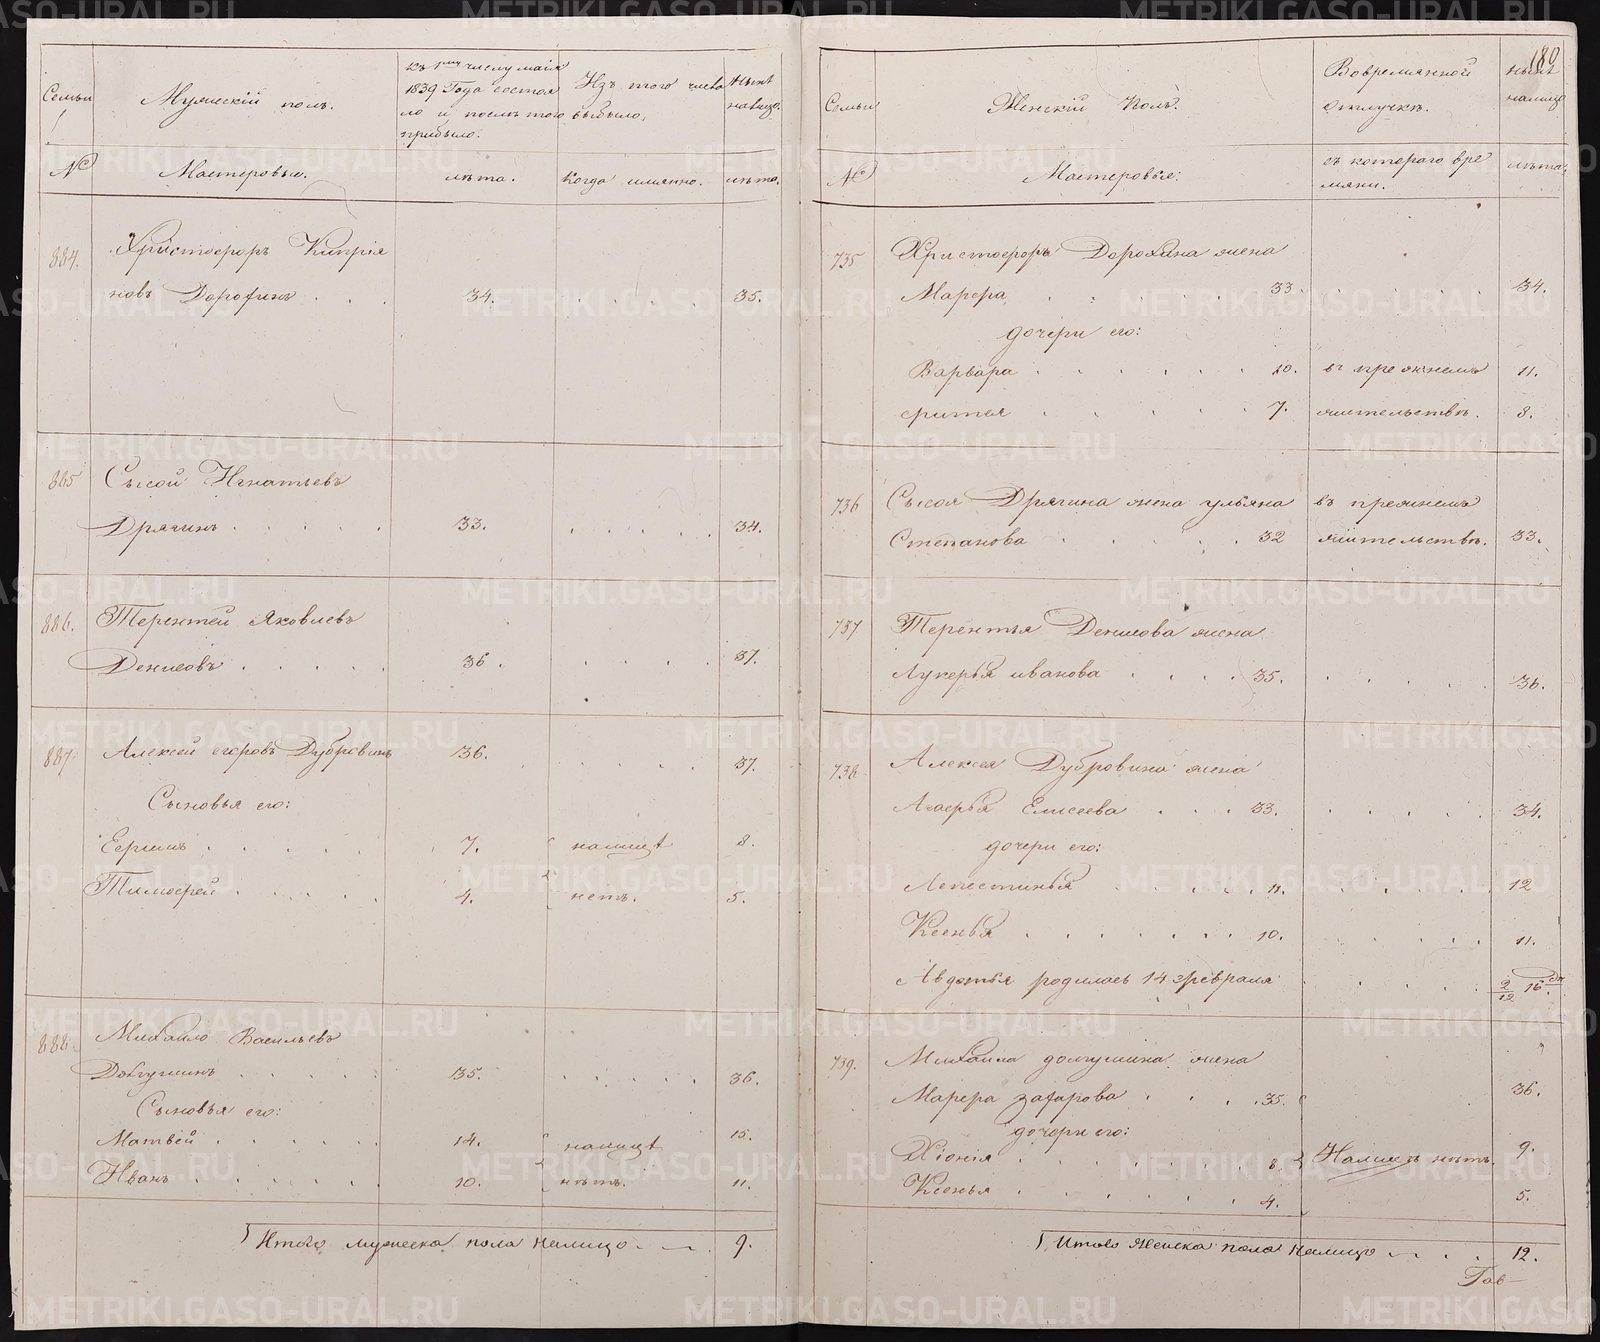 Семьи
Мужескій полъ.
къ 1му числу маія
1839 Года состоя
ло и послѣ того
прибыло.
Изъ того числа
выбыло,
Нынѣ
на лицо.
№
Мастеровыя.
лѣта.
когда имянно.
лѣта.
884.
Христофоръ Кипрія
новъ Дорофинъ . . . 34. . . . . . 35.
885
Сысой Игнатьевъ
Дрягинъ . . . . . 33. . . . . . 34.
886.
Терентей Яковлевъ
Денисовъ . . . . . 36. . . . . 37.
887
Алексей егоровъ Дубровинъ 36. . . . . . 37.
Сыновья его:
Ефримъ . . . . . 7. налицѣ 8.
Тимофей . . . . . 4. нетъ. 5.
888.
Михайло Васильевъ
Долгушинъ . . . . . 35. . . . . . 36.
Сыновья его:
Матвей . . . . . 14. налицѣ 15.
Иванъ . . . . . . 10. нѣтъ. 11.
Итого мужеска пола налицо . — . 9.
180
Семьи
Женскій Полъ.
Вовремянной
отлучкѣ.
Нынѣ
налицо
№
Мастеровыя:
съ котораго вре
мяни.
лѣта.
735
Христофора Дорофина жена
Марфа . . . . . . 33 . . . . . 34.
дочери его:
Варвара . . . . . . 10. въ прежнемъ 11.
7. жительствѣ. 8.
736
Сысоя Дрягина жена ульяна въ прежнемъ
Степанова . . . . . 32 жительствѣ. 33.
737
Терентья Денисова жена
Лукерья иванова . . . . 35. . . . . . 36.
738
Алексея Дубровина жена
Агафья Елисеева . . . 33. . . . . . 34.
дочери его:
. . . . . 11. . . . . . 12
Ксенья . . . . . . 10. . . . . 11.
Авдотья родилась 14 февраля . . . . . 2/12 16 дн
739.
Михаила долгушина жена
Марфа захарова . . . . 35. 36.
дочери его:
Хіонія . . . . . . . 8. Налицѣ нѣтъ. 9.
Ксенья . . . . . . 4. 5.
Итого Женска пола налицо . . . . 12.
Гав—
METRIKI.GASO-URAL.RU